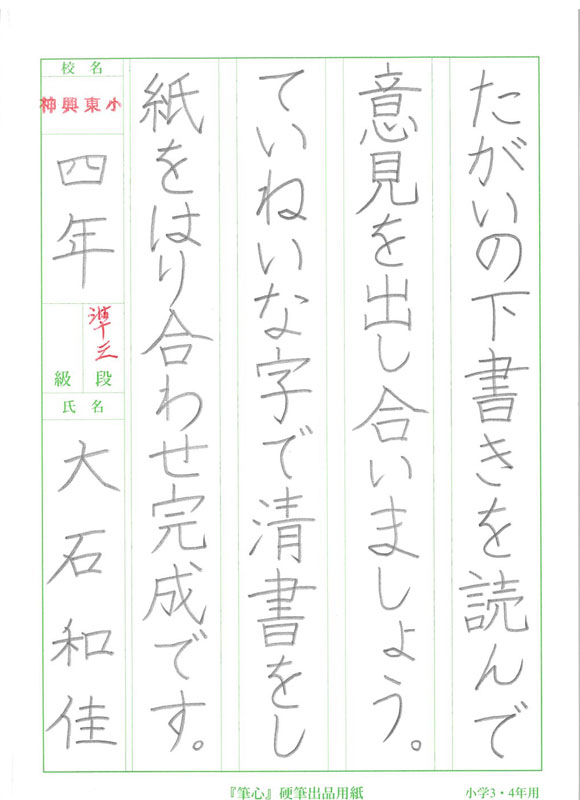 たがいの下書きを読んで
意見を出し合いましょう。
ていねいな字で清書をし
紙をはり合わせ完成です。
校名
神興東小
四年
準三
段
級
氏名
大石和佳
『筆心』硬筆出品用紙
小学3・4年用